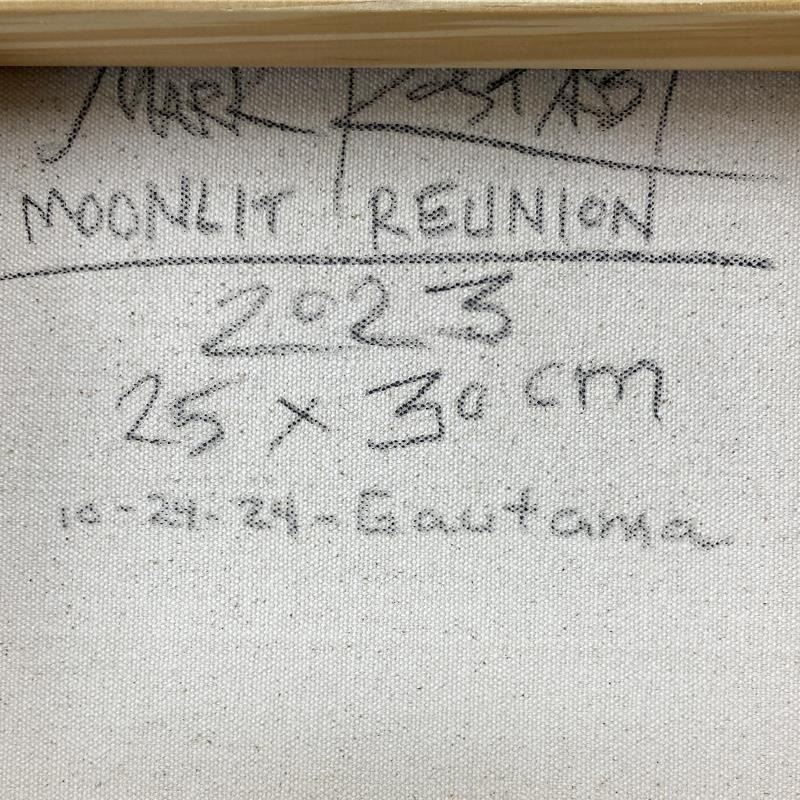 MARK
MOONLIT REUNION
2023
25 x 30 cm
10-24-24-Gautama